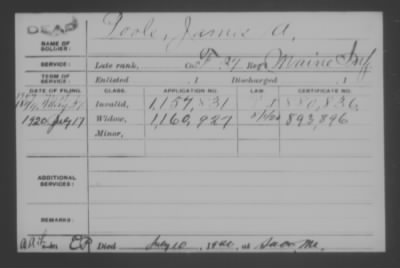 DEAD
NAME OF SOLDIER: Poole, James A.
SERVICE: Late rank, Co. F 27 Reg Maine Inf
TERM OF SERVICE: Enlisted , 1 Discharged , 1
DATE OF FILING. CLASS. APPLICATION NO. LAW. CERTIFICATE NO.
Invalid, 1,157,831 880,836
1920 July 17 Widow, 1,160,927 893,896
Minor,
ADDITIONAL SERVICES:
REMARKS:
Died July 10, 19 at Saco, Me.